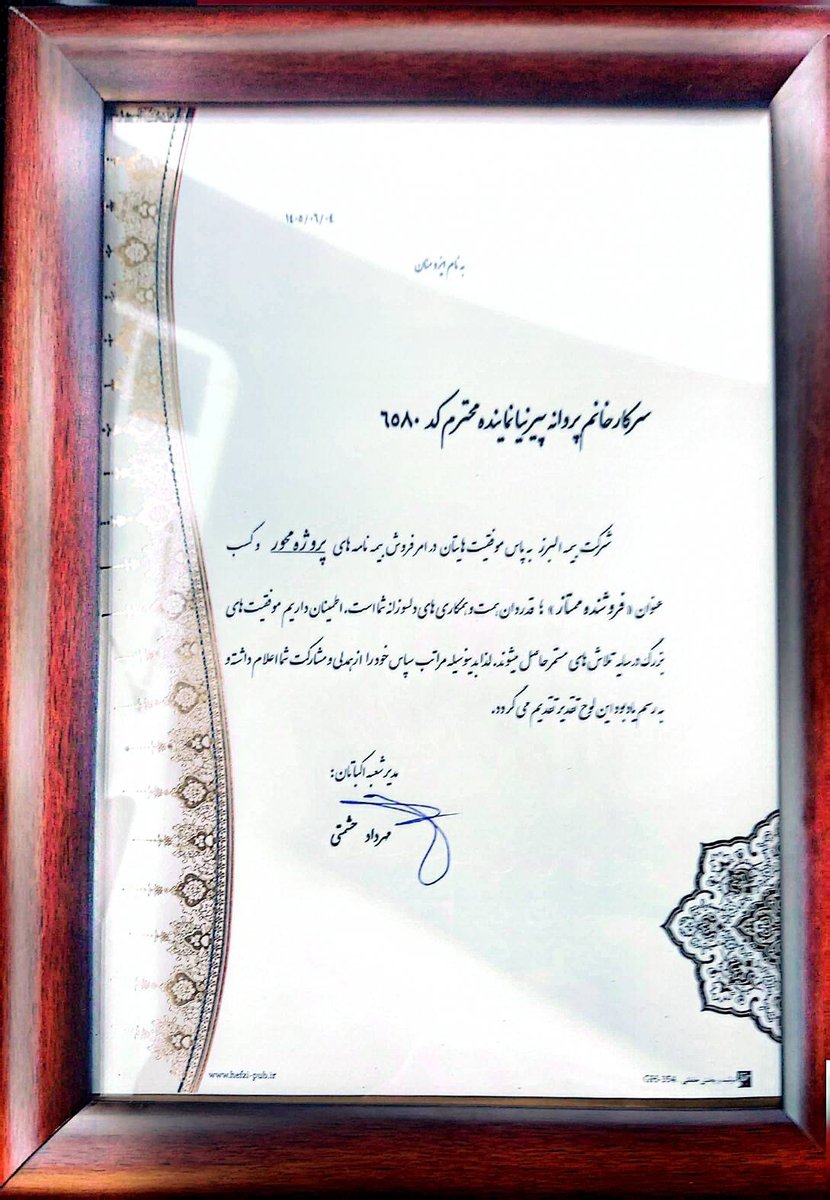 ۱۴۰۵/۰۶/۰۴
به نام ایزد منان
سرکار خانم پروانه پیرنیا نماینده محترم کد ۶۵۸۰
شرکت بیمه البرز به پاس موفقیت هایتان در امر فروش بیمه نامه های پروژه محور و کسب
عنوان «فروشنده ممتاز»؛ قدردان همت و همکاری های دلسوزانه شما است. اطمینان داریم موفقیت های
بزرگ در سایه تلاش های مستمر حاصل میشوند. لذا بدینوسیله مراتب سپاس خود را از همدلی و مشارکت شما اعلام داشته و
به رسم یادبود این لوح تقدیر تقدیم می گردد.
مدیر شعبه اکباتان:
مهرداد حشمتی
www.hefzi-pub.ir